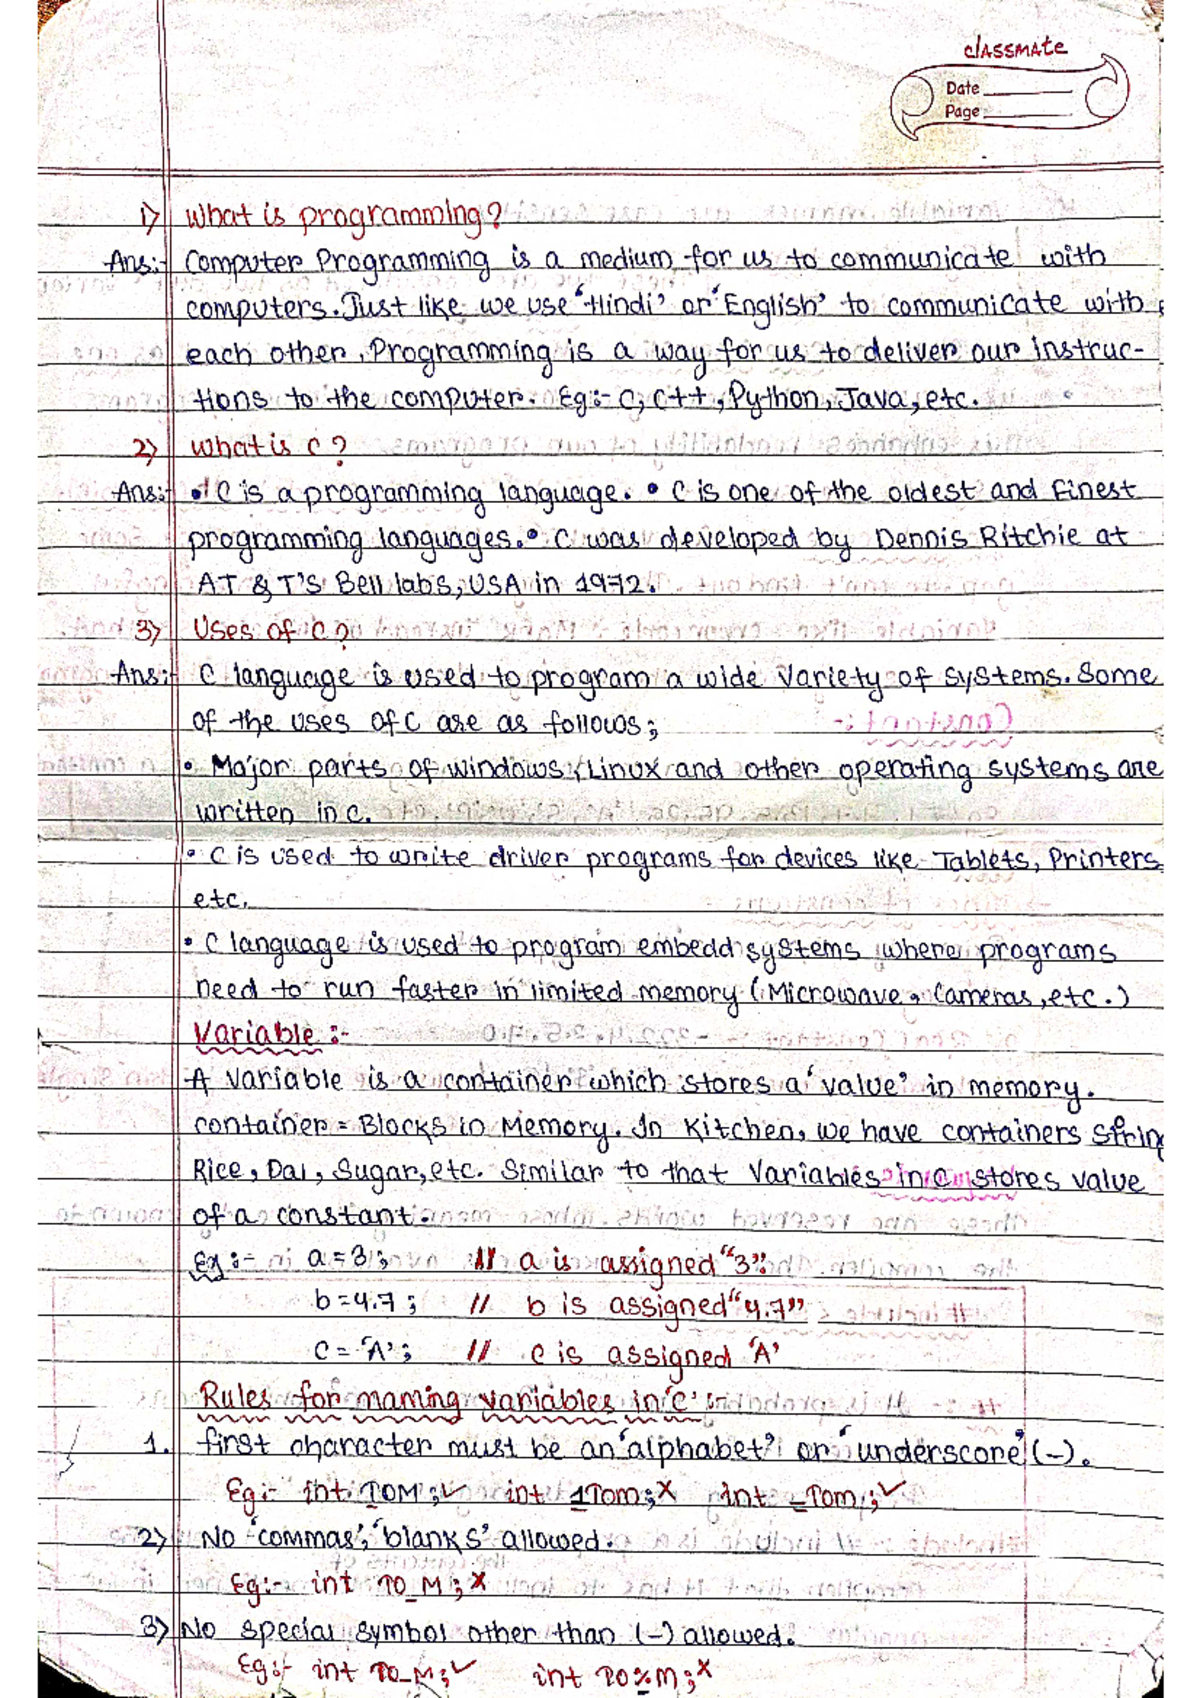 classmate
Date
Page
1) What is programming?
Ans:- Computer Programming is a medium for us to communicate with
computers. Just like we use 'Hindi' or 'English' to communicate with
each other, Programming is a way for us to deliver our instruc-
tions to the computer. Eg:- C, C++, Python, Java, etc.
2) What is C?
Ans:- • C is a programming language. • C is one of the oldest and finest
programming languages. • C was developed by Dennis Ritchie at
AT & T'S Bell labs, USA in 1972.
3) Uses of C?
Ans:- C language is used to program a wide variety of systems. Some
of the uses of C are as follows;
• Major parts of windows, Linux and other operating systems are
written in C.
• C is used to write driver programs for devices like Tablets, Printers
etc.
• C language is used to program embedd systems where programs
need to run faster in limited memory (Microwave, Cameras, etc.)
Variable :-
A variable is a container which stores a 'value' in memory.
container = Blocks in Memory. In Kitchen, we have containers
Rice, Dal, Sugar, etc. Similar to that Variables in C stores value
of a constant.
Eg:- a = 3; // a is assigned "3"
b = 4.7; // b is assigned "4.7"
C = 'A'; // c is assigned 'A'
Rules for maming variables in 'C' :-
1. first character must be an 'alphabet' or 'underscore' (_).
Eg:- int TOM; ✓ int 1Tom; × int _Tom; ✓
2) No 'commas', 'blanks' allowed.
Eg:- int TO_M; ×
3) No special symbol other than (_) allowed.
Eg:- int TO_M; ✓ int TO%M; ×